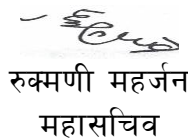 रुक्मणी महर्जन
महासचिव